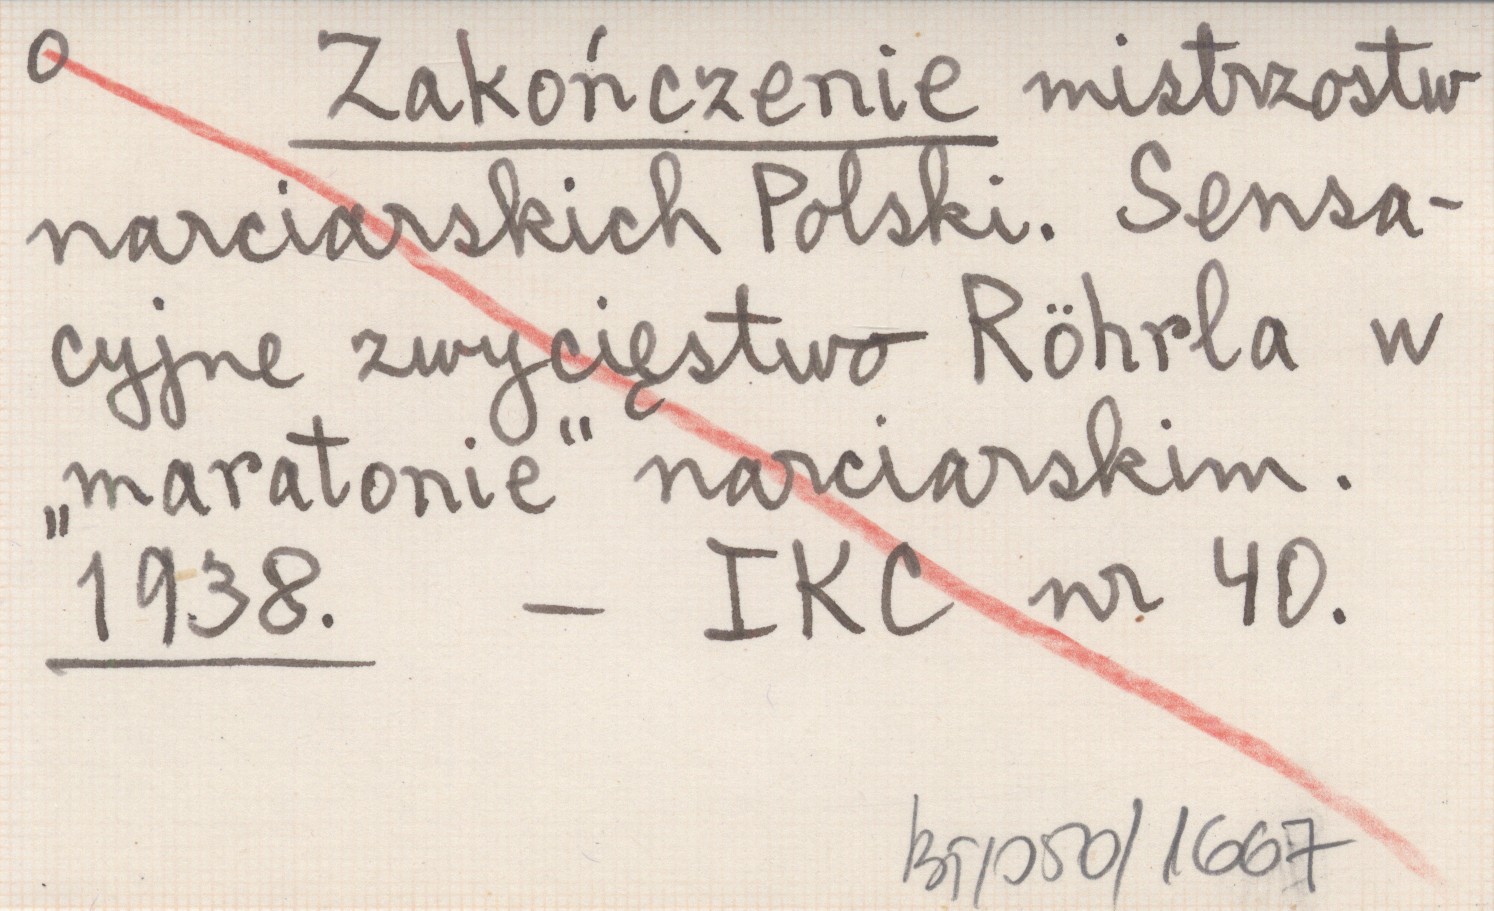 O Zakończenie mistrzostw
narciarskich Polski. Sensa-
cyjne zwycięstwo Röhrla w
„maratonie“ narciarskim.
1938. – IKC nr 40.
/1667